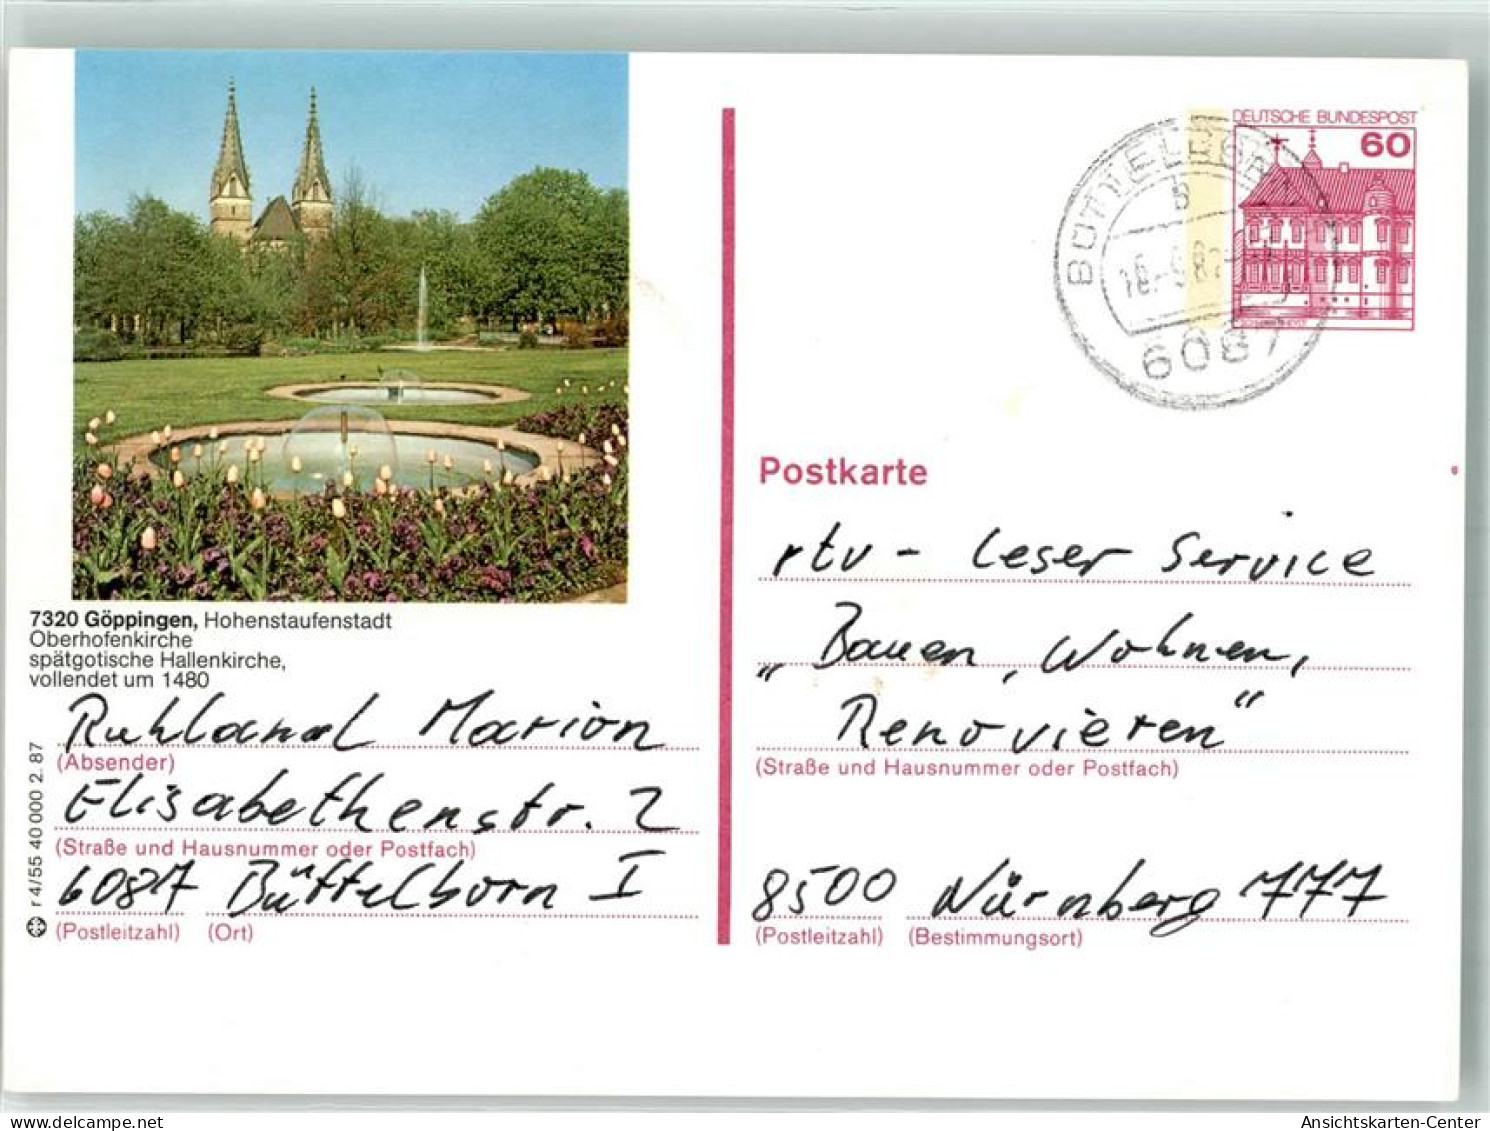 DEUTSCHE BUNDESPOST
60
BÜTTELBORN
b
6087
7320 Göppingen, Hohenstaufenstadt
Oberhofenkirche
spätgotische Hallenkirche,
vollendet um 1480
Ruhland Marion
(Absender)
Elisabethenstr. 2
(Straße und Hausnummer oder Postfach)
6087 Büttelborn I
(Postleitzahl) (Ort)
r 4/55 40 000 2. 87
Postkarte
rtv - Leser Service
„Bauen, Wohnen,
Renovieren“
(Straße und Hausnummer oder Postfach)
8500 Nürnberg 777
(Postleitzahl) (Bestimmungsort)
Ansichtskarten-Center